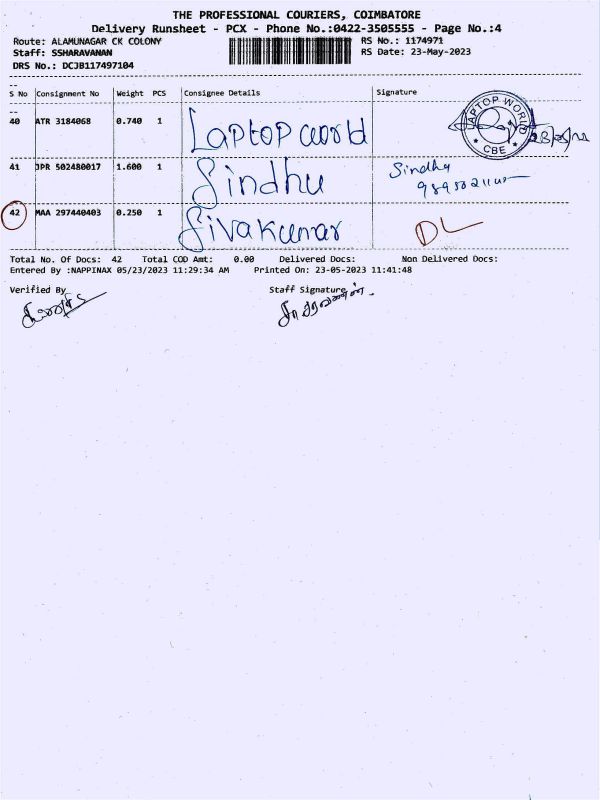 THE PROFESSIONAL COURIERS, COIMBATORE
Delivery Runsheet - PCX - Phone No.:0422-3505555 - Page No.:4
Route: ALAMUNAGAR CK COLONY RS No.: 1174971
Staff: SSHARAVANAN RS Date: 23-May-2023
DRS No.: DCJB117497104
S No Consignment No Weight PCS Consignee Details Signature
40 ATR 3184068 0.740 1 Laptop world LAPTOP WORLD * CBE *
41 JPR 502480017 1.600 1 Sindhu Sindhu
42 MAA 297440403 0.250 1 Sivakumar DL
Total No. Of Docs: 42 Total COD Amt: 0.00 Delivered Docs: Non Delivered Docs:
Entered By :NAPPINAX 05/23/2023 11:29:34 AM Printed On: 23-05-2023 11:41:48
Verified By Staff Signature